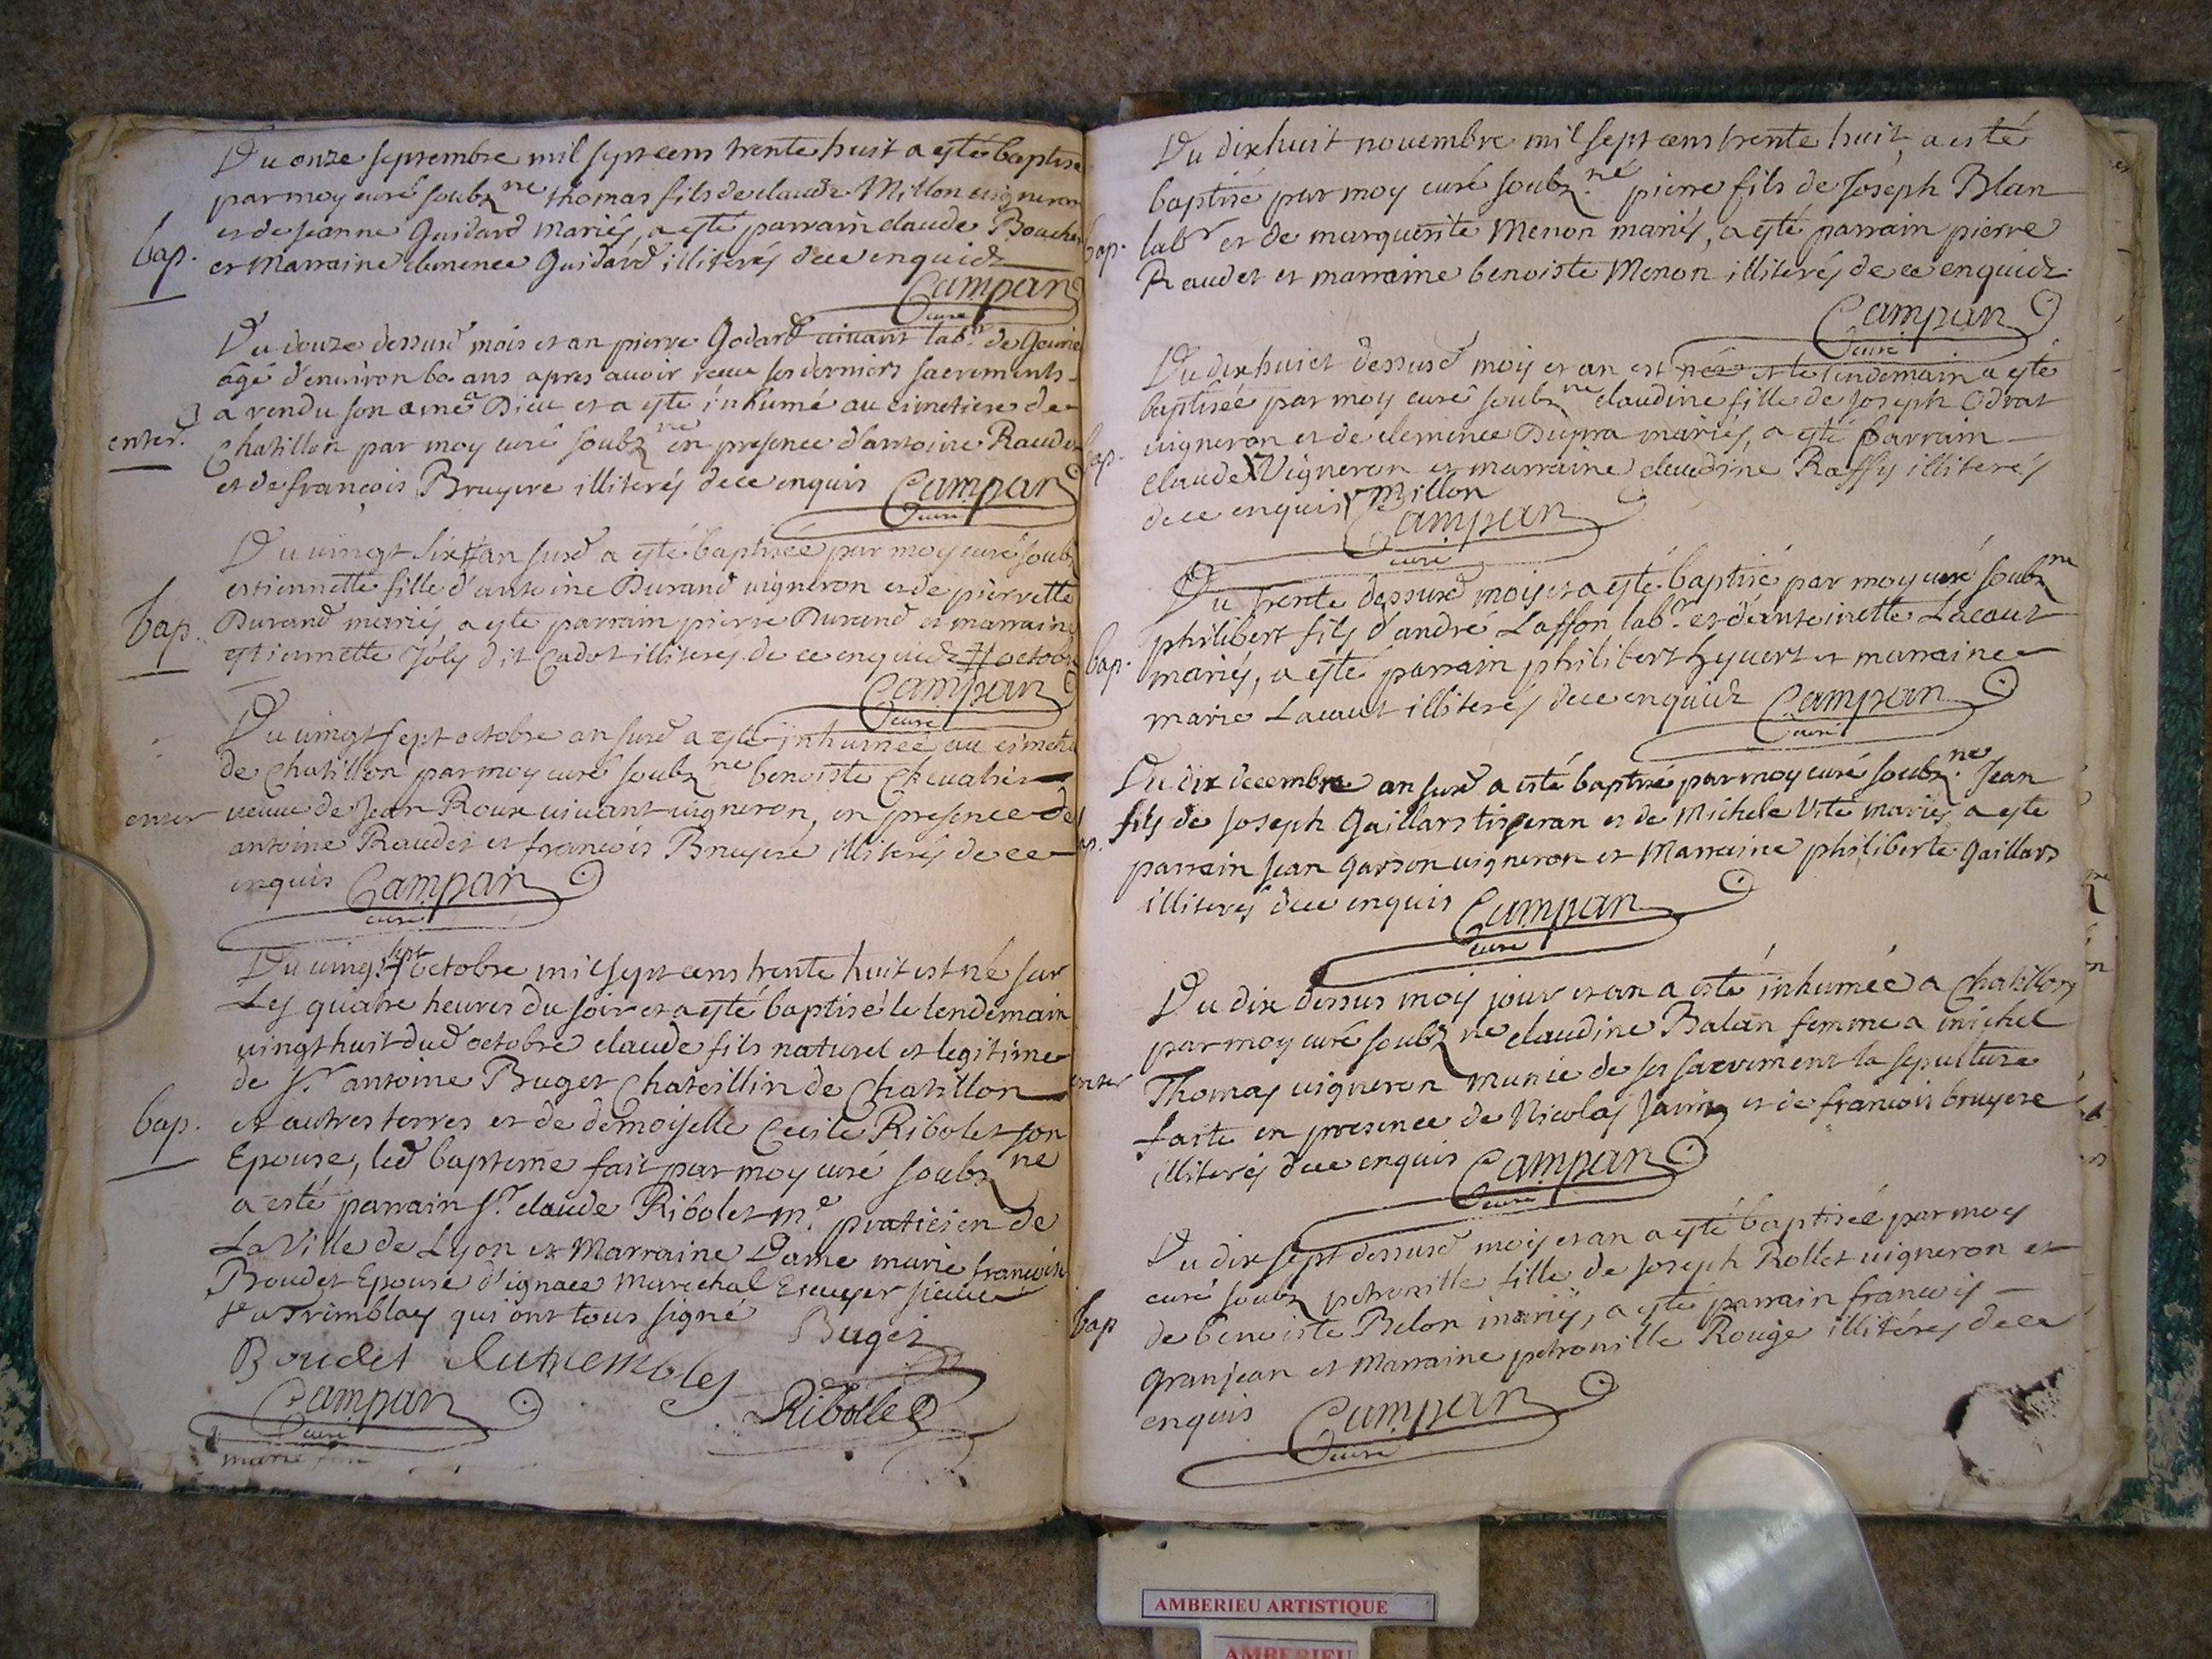 Du onze septembre mil sept cens trente huit a esté baptisé
par moy curé soubz.né thomas fils de claude Millon vigneron
et de jeanne Guidard mariés, a esté parrain claude Boucher
bap.
et Marraine clemence Guidard illiterés de ce enquidz
Campan
curé
Du douze dessusd mois et an pierre Godard vivant lab.r de
âgé d'environ 60 ans apres avoir receu ses derniers sacrements
a rendu son ame a Dieu et a esté inhumé au cimetiere de
enter.
Chatillon par moy curé soubz né en presence d'antoine Raudet
et de françois Bruyere illiterés de ce enquis Campan
curé
Du vingt six # an susd a esté baptisée par moy curé soubz
estiennette fille d'antoine Durand vigneron et de pierrette
bap.
Durand mariés a esté parrain pierre Durand et marraine
estiennette Joly dit Cadot illiterés de ce enquidz # octobre
Campan
curé
Du vingt sept octobre an susd a esté inhumée au cimetie
de Chatillon par moy curé soubz né benoiste Chevalier
enter
veuve de Jean Roux vivant vigneron, en presence de
antoine Raudet et francois Bruyere illiterés de ce
enquis Campan
curé
Du vingt sept octobre mil sept cens trente huit est né sur
Les quatre heures du soir et a esté baptisé le lendemain
vingt huit dud octobre claude fils naturel et legitime
de s.r antoine Buget Chateillin de Chatillon
bap.
et autres terres et de demoiselle Cecile Ribolet son
Epouse, led bapteme fait par moy curé soubz né
a esté parrain s.r claude Ribolet m.e praticien de
La Ville de Lyon et Marraine Dame marie francoise
Boudet Epouse d'ignace marechal Ecuyer sieur
du Tremblay qui ont tous signé
Buget
Boudet dutrembley
Campan
curé
Ribollet
marie
Du dixhuit novembre mil sept cens trente huit a esté
baptisé par moy curé soubz.né pierre fils de Joseph Blan
bap.
lab.r et de marguerite Menon mariés, a esté parrain pierre
Raudet et marraine benoiste Menon illiterés de ce enquidz
Campan
curé
Du dixhuict dessusd mois et an est née et le lendemain a esté
baptisée par moy curé soubz né claudine fille de Joseph Odrat
bap.
vigneron et de clemence Dupra mariés, a esté parrain
claude X Vigneron et marraine claudine Raffy illiterés
de ce enquis X Millon
Campan
curé
Du trente dessusd mois et a esté baptisé par moy curé soubz né
philibert fils d'andré Laffon lab.r et d'antoinette Lacout
bap.
mariés, a esté parrain philibert hyvert et marraine
marie Lacout illiterés de ce enquidz Campan
curé
Du dix decembre an susd a esté baptisé par moy curé soubz.né Jean
fils de Joseph Gaillard tisseran et de Michele Vite mariés a esté
ap.
parrain Jean Garson vigneron et Marraine philiberte Gaillard
illiterés de ce enquis Campan
curé
Du dix dessus mois jour et an a esté inhumée a Chatillon
par moy curé soubz né claudine Balan femme a michel
enter
Thomas vigneron munie de ses sacrement la sepulture
faite en presence de Nicolas Javin et de francois bruyere
illiterés de ce enquis Campan
curé
Du dix sept dessusd mois et an a esté baptisée par moy
curé soubz petronille fille de Joseph Rollet vigneron et
bap
de benoiste Belon mariés, a esté parrain francois
Granjean et Marraine petronille Rouge illiterés de ce
enquis Campan
curé
AMBERIEU ARTISTIQUE
AMBERIEU